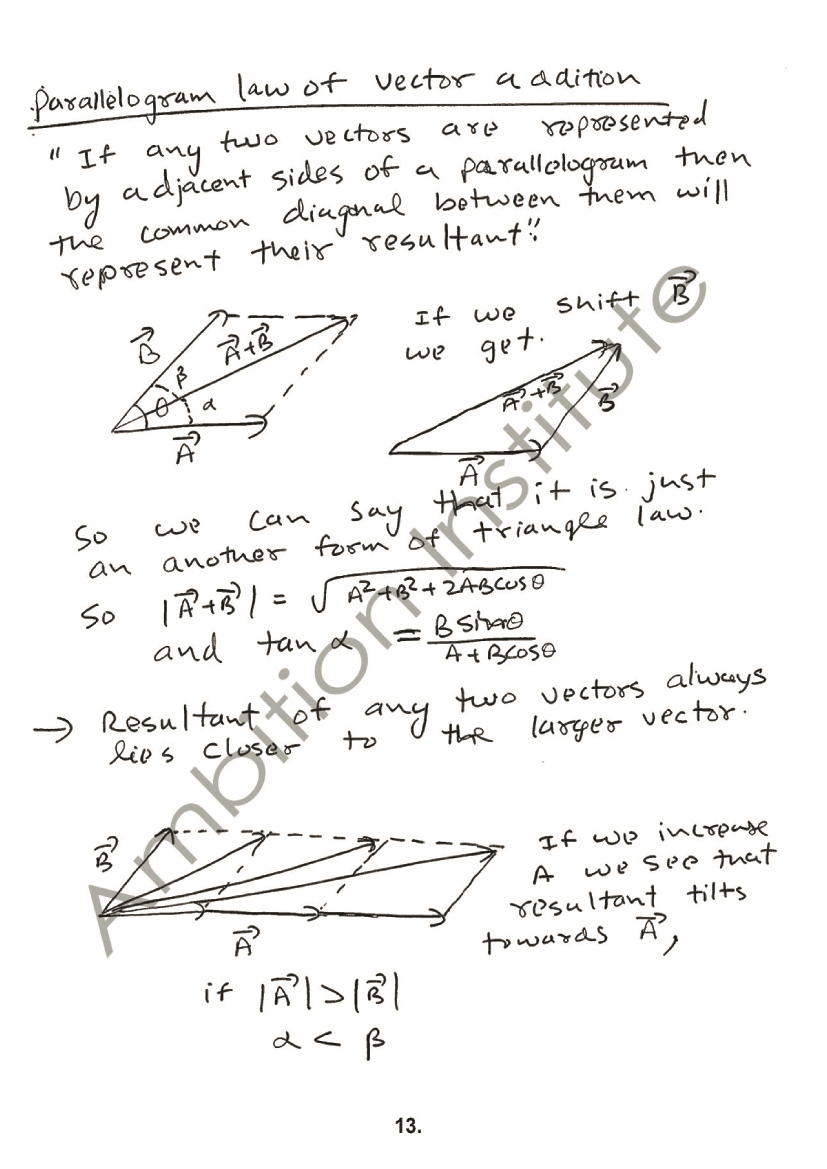 Parallelogram law of vector addition
"If any two vectors are represented
by adjacent sides of a parallelogram then
the common diagonal between them will
represent their resultant".
If we shift B⃗
we get.
B⃗
A⃗+B⃗
β
θ
α
A⃗
A⃗+B⃗
B⃗
A⃗
So we can say that it is just
an another form of triangle law.
So |A⃗+B⃗| = √(A²+B²+2ABcosθ)
and tan α = B sinθ / A+Bcosθ
→ Resultant of any two vectors always
lies closer to the larger vector.
B⃗
A⃗
If we increase
A we see that
resultant tilts
towards A⃗,
if |A⃗|>|B⃗|
α < β
Ambition Institute
13.